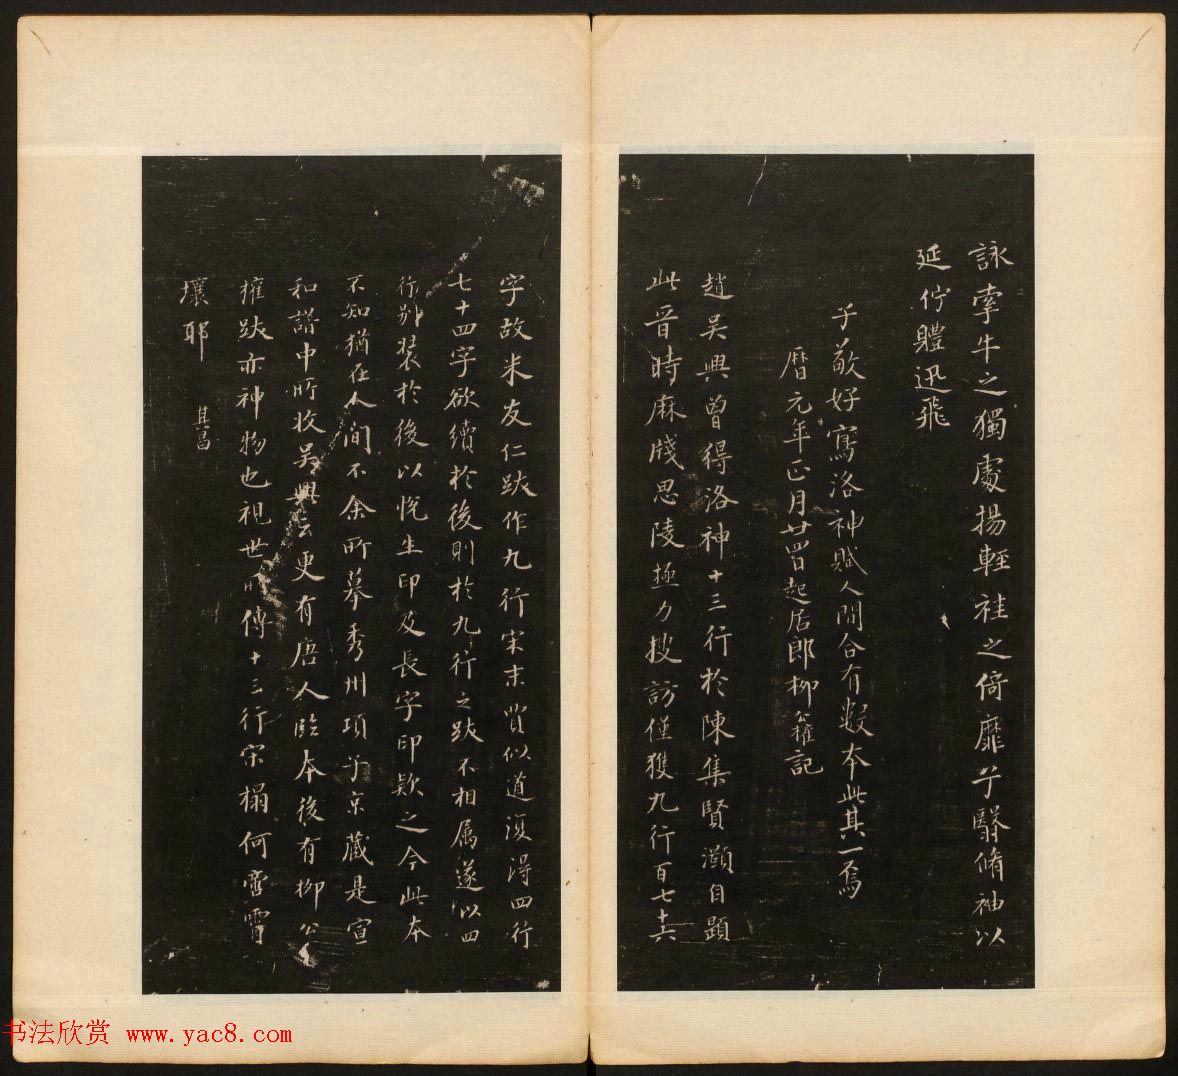 詠牽牛之獨處揚輕袿之倚靡兮翳脩袖以
延佇體迅飛
子敬好寫洛神賦人間合有數本此其一焉
曆元年正月廿四日起居郎柳公權記
趙吳興曾得洛神十三行於陳集賢灝自題
此晉時麻牋思陵極力搜訪僅獲九行百七十六
字故米友仁跋作九行宋末賈似道復得四行
七十四字欲續於後則於九行之跋不相属遂以四
行别裝於後以悅生印及長字印款之今此本
不知猶在人間不余所摹秀州項子京藏是宣
和譜中所收吳興云更有唐人臨本後有柳公
權跋亦神物也視世所傳十三行宋搨何啻霄
壤耶
其昌
书法欣赏 www.yac8.com